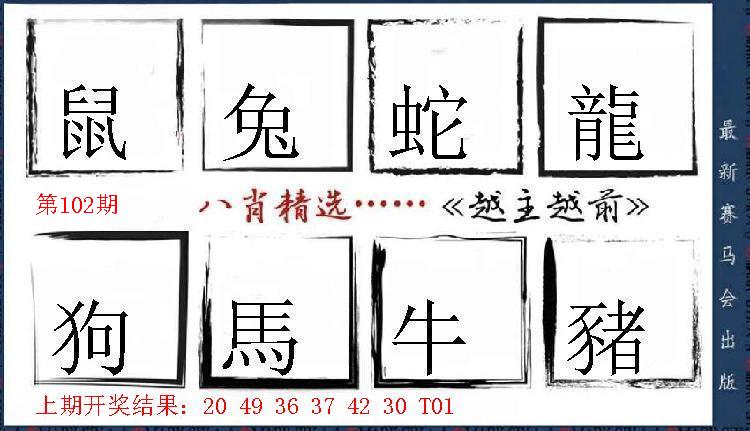 鼠 兔 蛇 龍
第102期 八肖精选……《越主越前》
狗 馬 牛 豬
上期开奖结果：20 49 36 37 42 30 T01
最新赛马会出版